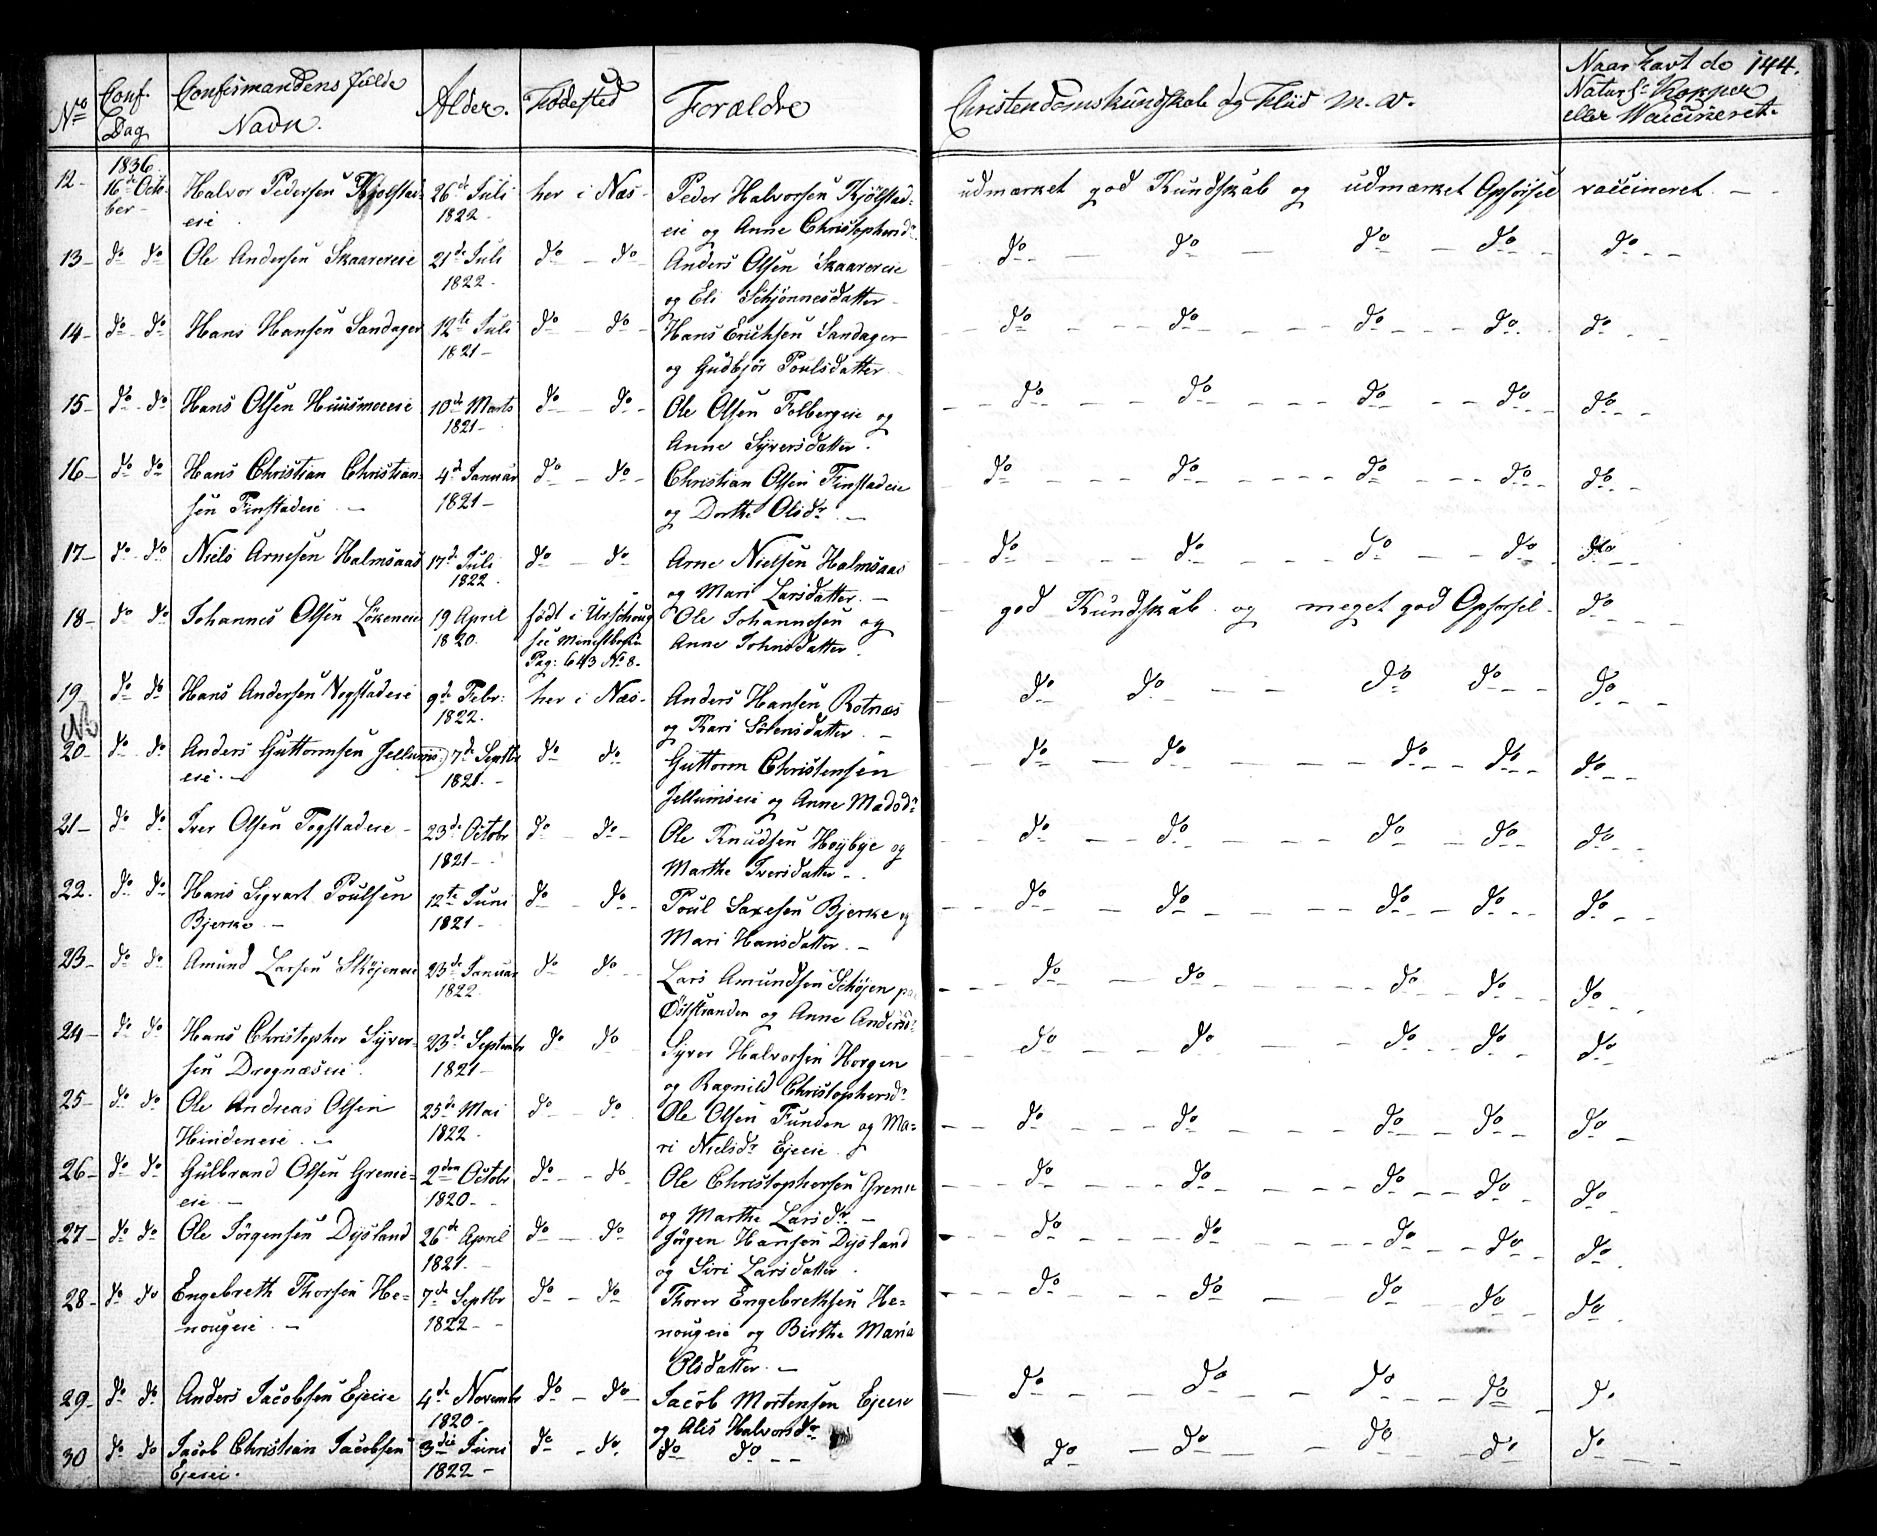 No Conf. Dag Confirmandens fulde Navn. Alder. Fødested Forældre Christendomskundskab og Fliid m. v. Naar havt de Naturl: Kopper eller Vaccineret. 144.
12- 1836 16de Octo- Halvor Pedersen Kjølstad- 26de Juli her i Næs- Peder Halvorsen Kjølstad- udmærket god Kundskab og udmærket Opførsel vaccineret. -
ber- eie 1822 eie og Anne Christophersdr
13- do do Ole Andersen Skaarereie 21de Juli do - do Anders Olsen Skaarereie do do do do do
1822- og Eli Schjønnesdatter
14- do do Hans Hansen Sandager 12te Juli do - do Hans Erichsen Sandager do do do do do
1821- og Gudbjør Poulsdatter
15- do do Hans Olsen Huusmoeeie 10de Marts do - do Ole Olsen Folbergeie og do do do do do
1821- Anne Syversdatter.
16- do do Hans Christian Christian- 4de Januar do - do Christian Olsen Finstadeie do do do do do
sen Finstadeie - 1821- og Dorthe Olsdr. -
17- do do Niels Arnesen Halmsaas 17de Juli do - do Arne Nielsen Halmsaas do do do do do
1822 og Mari Larsdatter. -
18- do do Johannes Olsen Løkeneie 19 April født i Urschoug Ole Johannesen og god Kundskab og meget god Opførsel- do
1820. see Ministbogen Anne Johnsdatter.
Pag: 643 No 8-
19 do do Hans Andersen Nogstadeie 9de Febr: her i Næs- Anders Hansen Rotnæs do do do do do
1822. og Kari Sørensdatter. -
Nb
20- do do Anders Guttormsen Jellums 7de Septbr do do Guttorm Christensen do do do do do
eie. - 1821- Jellumseie og Anne Madsdr
21- do do Iver Olsen Fogstadeie - 23de Octobr do - do Ole Knudsen Høybye og do do do do do
1821- Marthe Iversdatter -
22. do do Hans Sigvart Poulsen 12te Juni do - do Poul Saxesen Bjerke og do do do do do
Bjerke - 1821- Mari Hansdatter. -
23- do do Amund Larsen Skøjeneie 23de Januar do do Lars Amundsen Schøjen paa do do do do do
1822. Øststranden og Anne Andersdr
24- do do Hans Christopher Syver- 23de Septembr do do Syver Halvorsen Horgen do do do do do
sen Drognæseie 1821- og Ragnild Christophersdr
25- do do Ole Andreas Olsen 25de Mai do - do Ole Olsen Funden og Ma- do do do do do
Hindeneie. - 1822. ri Nielsdr Ejeeie
26- do do Gulbrand Olsen Grenie- 2den Octobr do - do Ole Christophersen do do do do do
eie - 1820- og Marthe Larsdr. -
27- do do Ole Jørgensen Dysland 26de April do - do Jørgen Hansen Dysland do do do do do
1821. og Siri Larsdatter
28- do do Engebreth Thorsen He- 7de Septbr do - do Thorer Engebrethsen He- do do do do do
nougeie. - 1822- nougeie og Birthe Maria
Olsdatter. -
29- do do Anders Jacobsen Ejeeie 4de Novembr do - do Jacob Mortensen Ejeeie do do do do do
1820- og Alis Halvorsdr
30 do do Jacob Christian Jacobsen 3die Juni do - do do do - - do do do do do
Ejeeie. 1822-